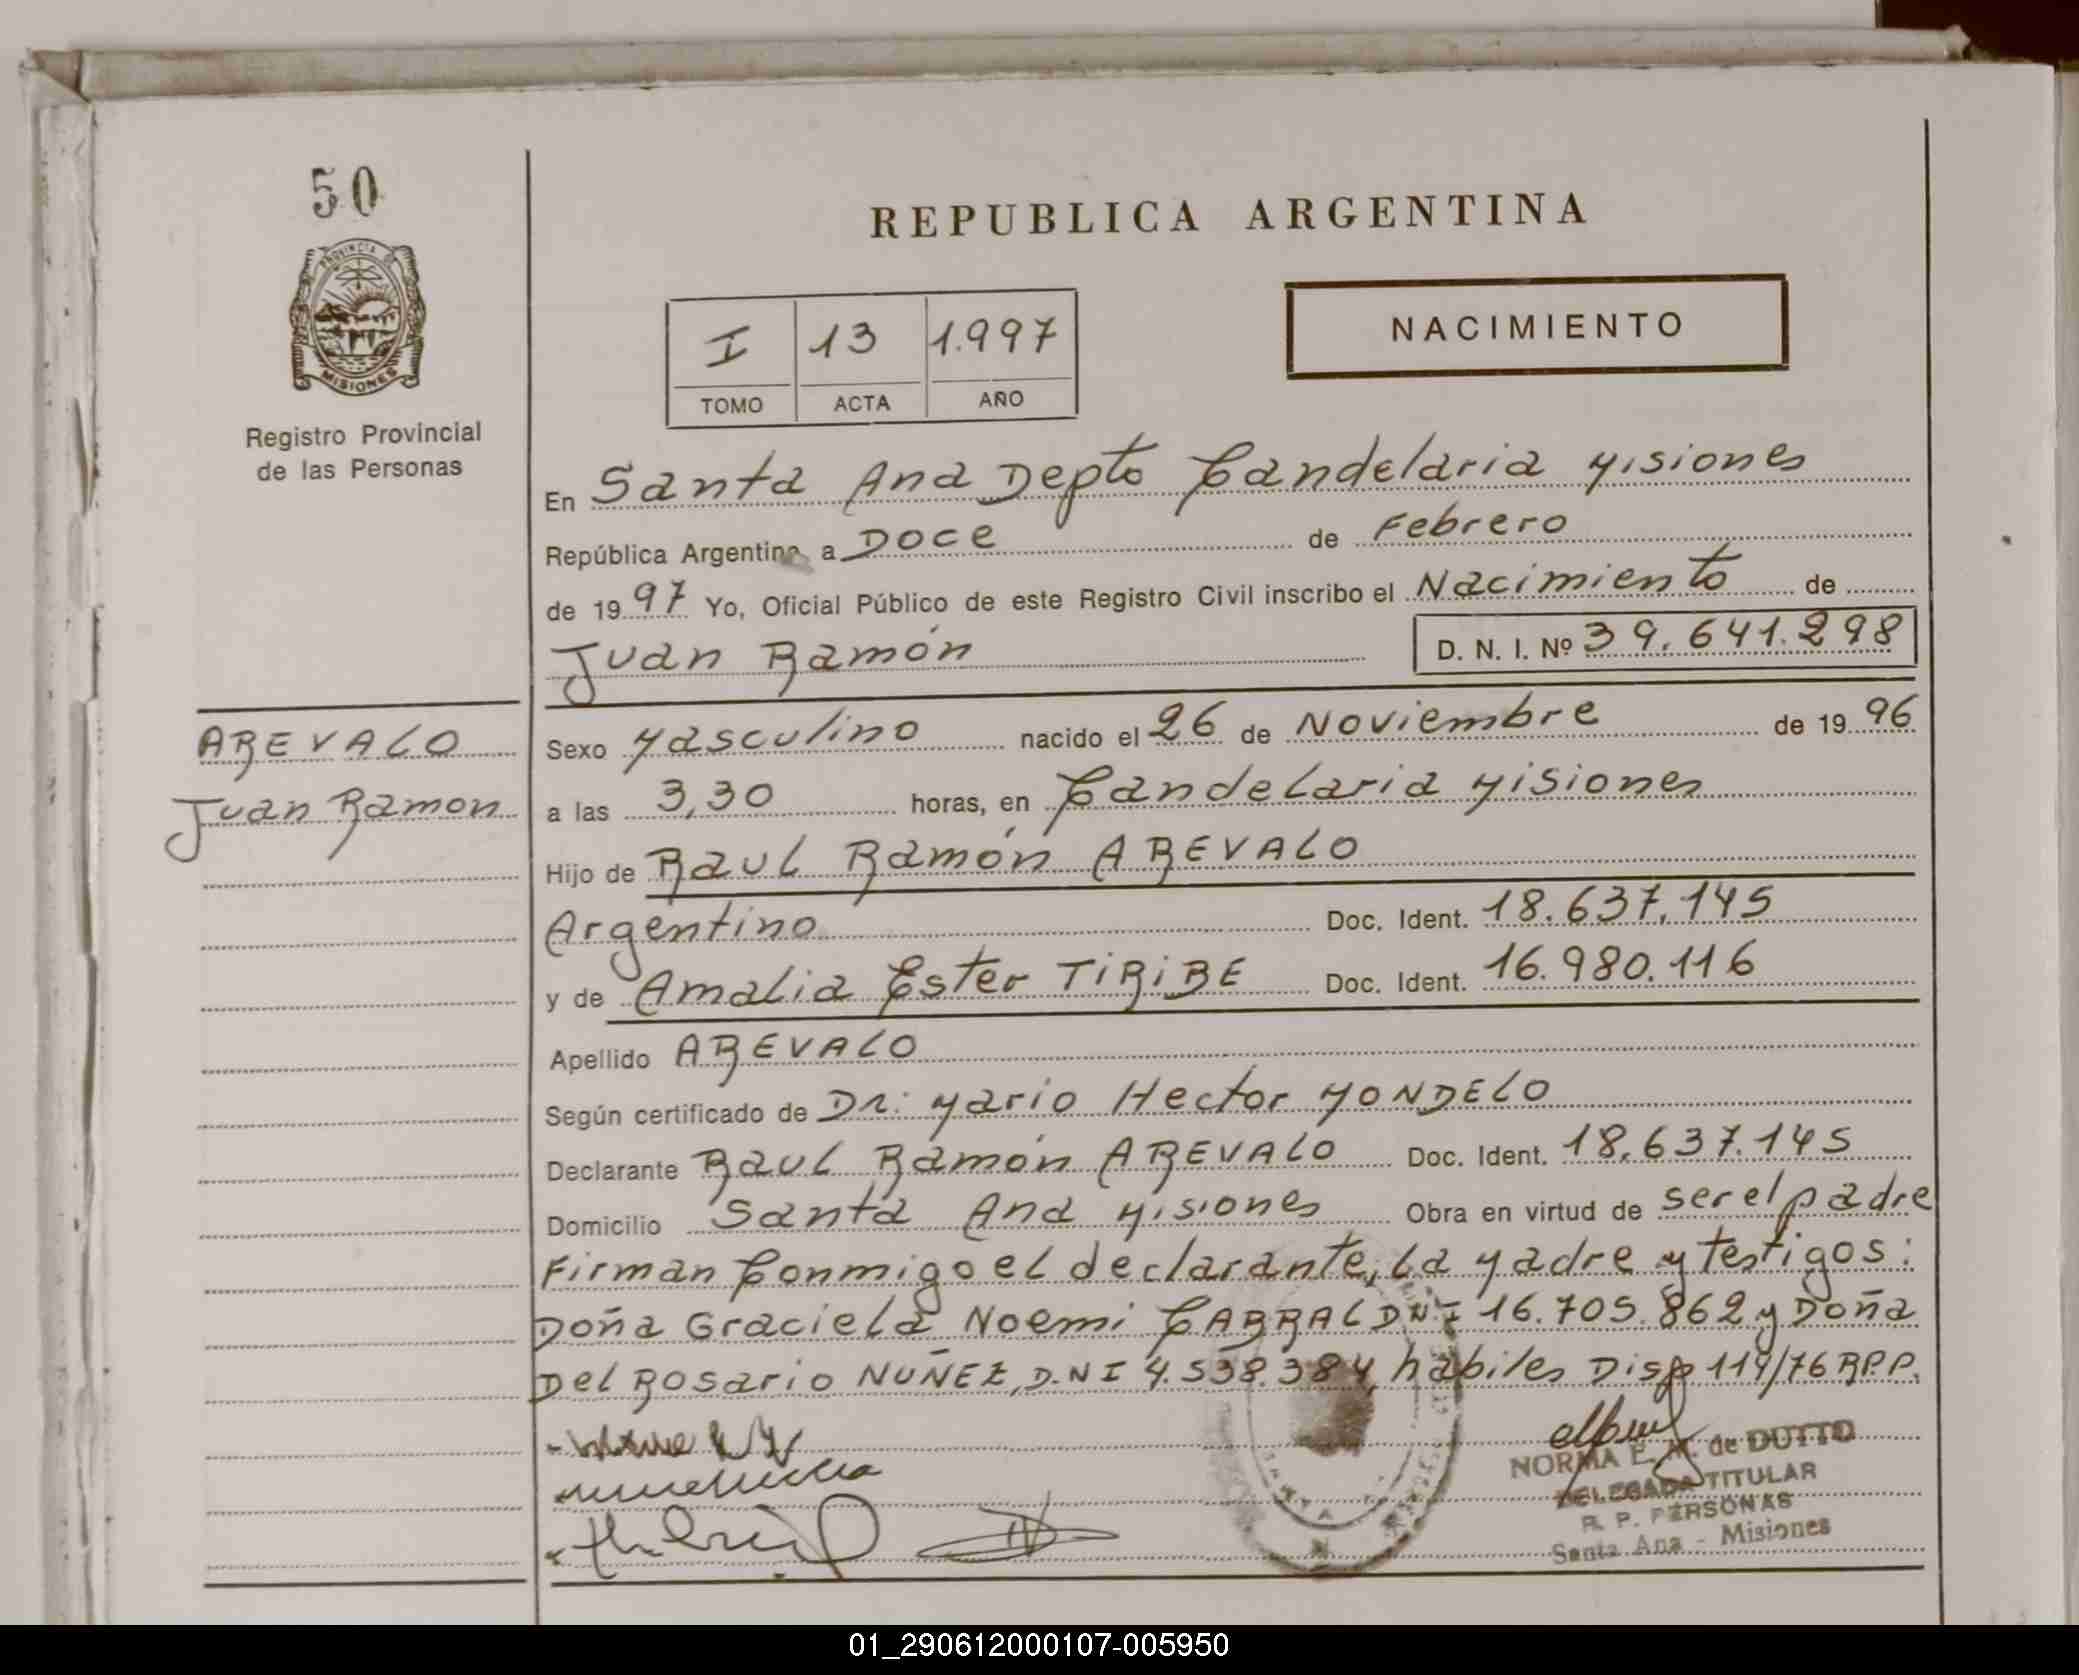 50
PROVINCIA DE
MISIONES
Registro Provincial
de las Personas
REPUBLICA ARGENTINA
I 13 1.997
TOMO ACTA AÑO
NACIMIENTO
En Santa Ana Depto Candelaria Misiones
República Argentina a Doce de Febrero
de 1997 Yo, Oficial Público de este Registro Civil inscribo el Nacimiento de
Juan Ramón D. N. I. Nº 39.641.298
AREVALO
Juan Ramon
Sexo Masculino nacido el 26 de Noviembre de 1996
a las 3,30 horas, en Candelaria Misiones
Hijo de Raul Ramón AREVALO
Argentino Doc. Ident. 18.637.145
y de Amalia Ester TIRIBE Doc. Ident. 16.980.116
Apellido AREVALO
Según certificado de Dr: Mario Hector MONDELO
Declarante Raul Ramón AREVALO Doc. Ident. 18.637.145
Domicilio Santa Ana Misiones Obra en virtud de ser el padre
Firman Conmigo el declarante, La Madre y Testigos:
Doña Graciela Noemi CABRAL DNI 16.705.862 y Doña
Del Rosario NUÑEZ, D.N I 4.538.384, habiles Disp 119/76 R.P.P.
NORMA E. M. de DUTTO
DELEGADA TITULAR
R. P. PERSONAS
Santa Ana - Misiones
01_290612000107-005950